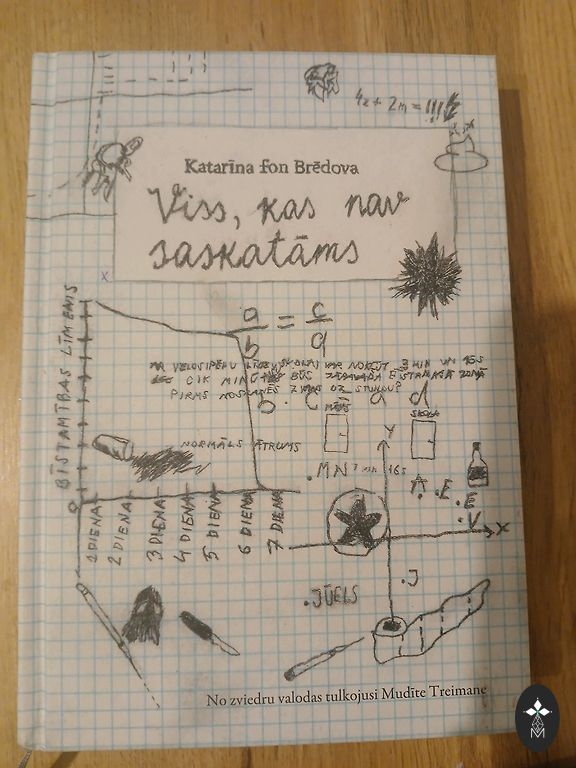 4x + 2m = !!!
Katarīna fon Brēdova
Viss, kas nav
saskatāms
x
BĪSTAMĪBAS LĪMENIS
a/b = c/d
AR VELOSIPĒDU LĪDZ SKOLAI VAR NOKĻŪT 7 MIN UN 16S
CIK MIN BŪS JĀPAVADA BĪSTAMAJĀ ZONĀ
PIRMS NOSPIEDĪS UZ STUNDU?
b · c = a · d
MĀJAS
SKOLA
NORMĀLS ĀTRUMS
Y
MN 7 MIN 16S
A
E
E
V
X
0
1 DIENA
2 DIENA
3 DIENA
4 DIENA
5 DIENA
6 DIENA
7 DIENA
JŪELS
J
No zviedru valodas tulkojusi Mudīte Treimane
M